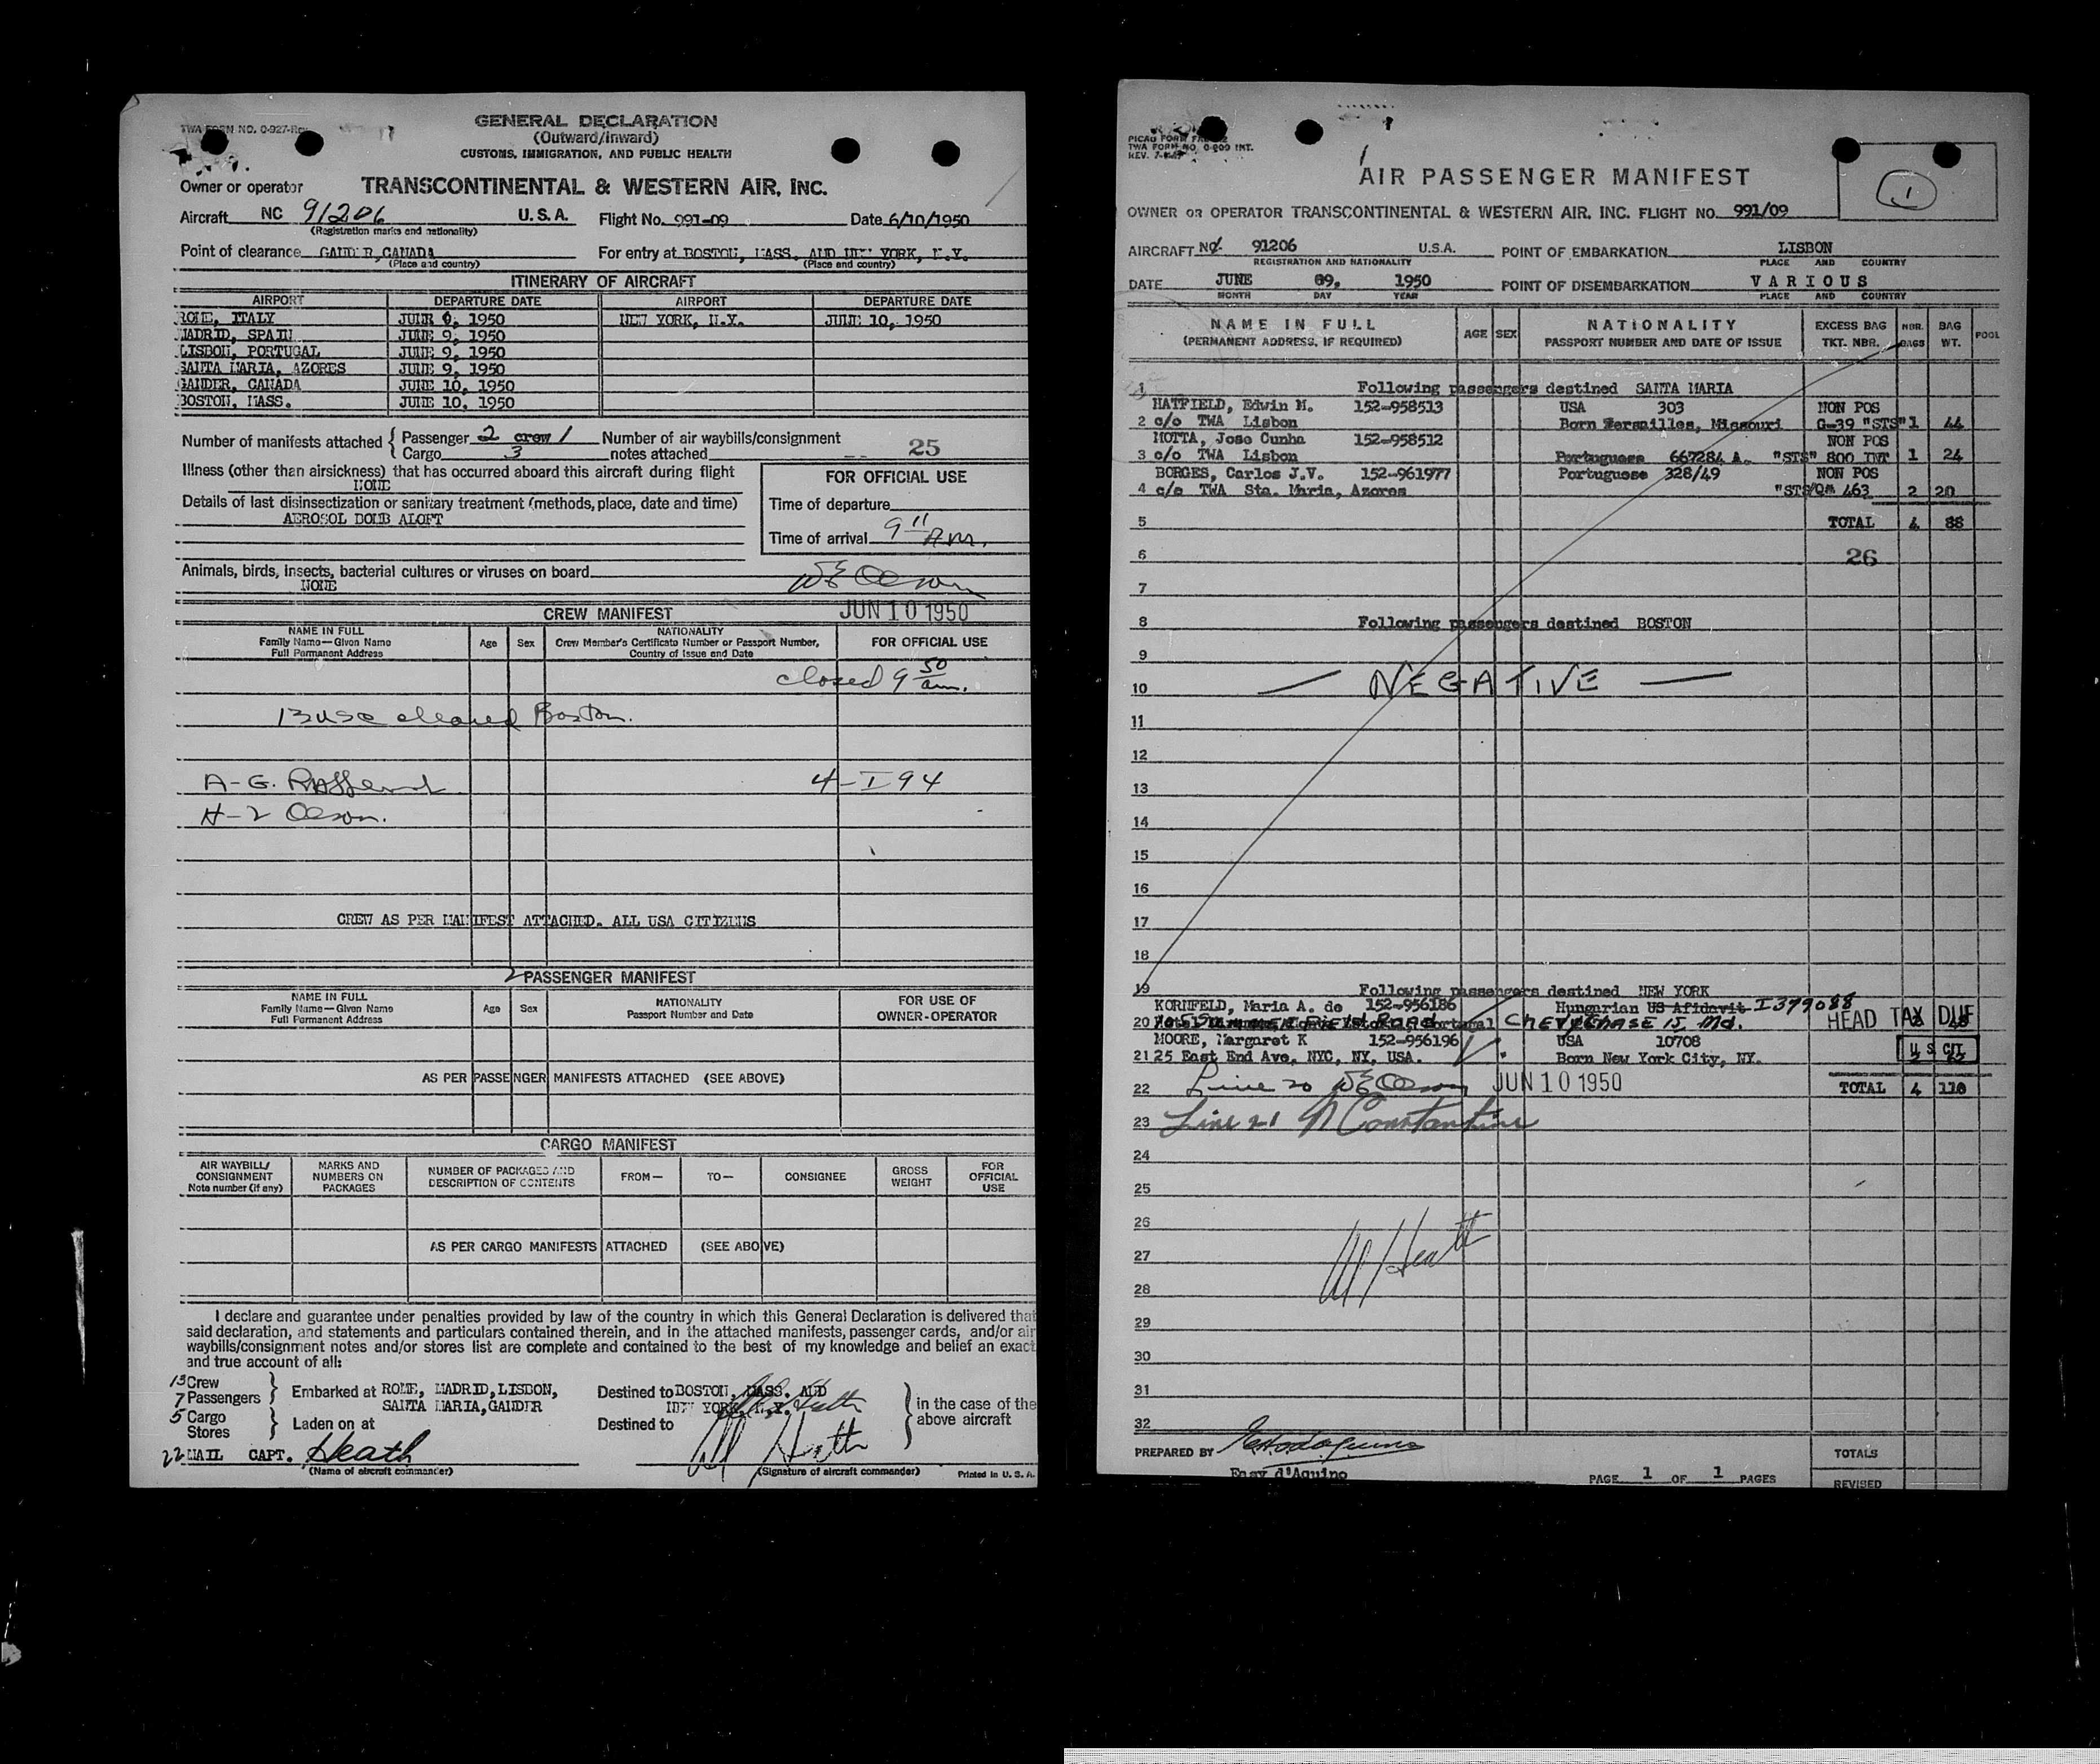 TWA FORM NO. 0-927-Rev
GENERAL DECLARATION
(Outward/Inward)
CUSTOMS, IMMIGRATION, AND PUBLIC HEALTH
Owner or operator TRANSCONTINENTAL & WESTERN AIR, INC.
Aircraft NC 91206 U.S.A. Flight No. 991-09 Date 6/10/1950
(Registration marks and nationality)
Point of clearance GANDER, CANADA For entry at BOSTON, MASS. AND NEW YORK, N.Y.
(Place and country) (Place and country)
ITINERARY OF AIRCRAFT
AIRPORT DEPARTURE DATE AIRPORT DEPARTURE DATE
ROME, ITALY JUNE 6, 1950 NEW YORK, N.Y. JUNE 10, 1950
MADRID, SPAIN JUNE 9, 1950
LISBON, PORTUGAL JUNE 9, 1950
SANTA MARIA, AZORES JUNE 9, 1950
GANDER, CANADA JUNE 10, 1950
BOSTON, MASS. JUNE 10, 1950
Number of manifests attached { Passenger 2 crew 1 Number of air waybills/consignment
Cargo 3 notes attached 25
Illness (other than airsickness) that has occurred aboard this aircraft during flight
NONE
Details of last disinsectization or sanitary treatment (methods, place, date and time)
AEROSOL BOMB ALOFT
FOR OFFICIAL USE
Time of departure
Time of arrival 9 11 A.M.
Animals, birds, insects, bacterial cultures or viruses on board
NONE
W E Olson
JUN 10 1950
CREW MANIFEST
NAME IN FULL
Family Name—Given Name
Full Permanent Address
Age Sex
NATIONALITY
Crew Member's Certificate Number or Passport Number,
Country of Issue and Date
FOR OFFICIAL USE
closed 9 50 am.
13 usc cleared Boston.
4-I94
H-2 Olson.
CREW AS PER MANIFEST ATTACHED. ALL USA CITIZENS
2 PASSENGER MANIFEST
NAME IN FULL
Family Name—Given Name
Full Permanent Address
Age Sex
NATIONALITY
Passport Number and Date
FOR USE OF
OWNER-OPERATOR
AS PER PASSENGER MANIFESTS ATTACHED (SEE ABOVE)
CARGO MANIFEST
AIR WAYBILL/
CONSIGNMENT
Note number (if any)
MARKS AND
NUMBERS ON
PACKAGES
NUMBER OF PACKAGES AND
DESCRIPTION OF CONTENTS
FROM— TO— CONSIGNEE
GROSS
WEIGHT
FOR
OFFICIAL
USE
AS PER CARGO MANIFESTS ATTACHED (SEE ABOVE)
I declare and guarantee under penalties provided by law of the country in which this General Declaration is delivered that
said declaration, and statements and particulars contained therein, and in the attached manifests, passenger cards, and/or air
waybills/consignment notes and/or stores list are complete and contained to the best of my knowledge and belief an exact
and true account of all:
13 Crew
7 Passengers } Embarked at ROME, MADRID, LISBON, Destined to BOSTON, MASS. AND
SANTA MARIA, GANDER NEW YORK, N.Y.
5 Cargo
Stores } Laden on at Destined to
in the case of the
above aircraft
22 MAIL CAPT. Heath
(Name of aircraft commander) (Signature of aircraft commander) Printed in U. S. A.
TWA FORM NO. 0-200 INT.
AIR PASSENGER MANIFEST
1
OWNER OR OPERATOR TRANSCONTINENTAL & WESTERN AIR, INC. FLIGHT NO. 991/09
AIRCRAFT NC 91206 U.S.A. POINT OF EMBARKATION LISBON
REGISTRATION AND NATIONALITY PLACE AND COUNTRY
DATE JUNE 09, 1950 POINT OF DISEMBARKATION VARIOUS
MONTH DAY YEAR PLACE AND COUNTRY
NAME IN FULL
(PERMANENT ADDRESS, IF REQUIRED)
AGE SEX
NATIONALITY
PASSPORT NUMBER AND DATE OF ISSUE
EXCESS BAG
TKT. NBR.
NBR.
BAGS
BAG
WT.
POOL
1 Following passengers destined SANTA MARIA
HATFIELD, Edwin M. 152-958513 USA 303 NON POS
2 c/o TWA Lisbon Born Versailles, Missouri G-39 "STS" 1 44
MOTTA, Jose Cunha 152-958512 NON POS
3 c/o TWA Lisbon Portuguese 667284 A. "STS" 800 INT 1 24
BORGES, Carlos J.V. 152-961977 Portuguese 328/49 NON POS
4 c/o TWA Sta. Maria, Azores "STS/QM 463 2 20
5 TOTAL 4 88
6 26
7
8 Following passengers destined BOSTON
9
10 — NEGATIVE —
11
12
13
14
15
16
17
18
19 Following passengers destined NEW YORK
KORNFELD, Maria A. de 152-956186 Hungarian US Afidavit I379088
20 Chevy Chase 15 Md. HEAD TAX DUE
MOORE, Margaret K 152-956196 USA 10708
21 25 East End Ave. NYC, NY. USA. Born New York City, NY. U S CIT
22 Line 20 W E Olson JUN 10 1950 TOTAL 4 110
23 Line 21 N Constantine
24
25
26
27
28
29
30
31
32
PREPARED BY
Easy d'Aquino
PAGE 1 OF 1 PAGES
TOTALS
REVISED